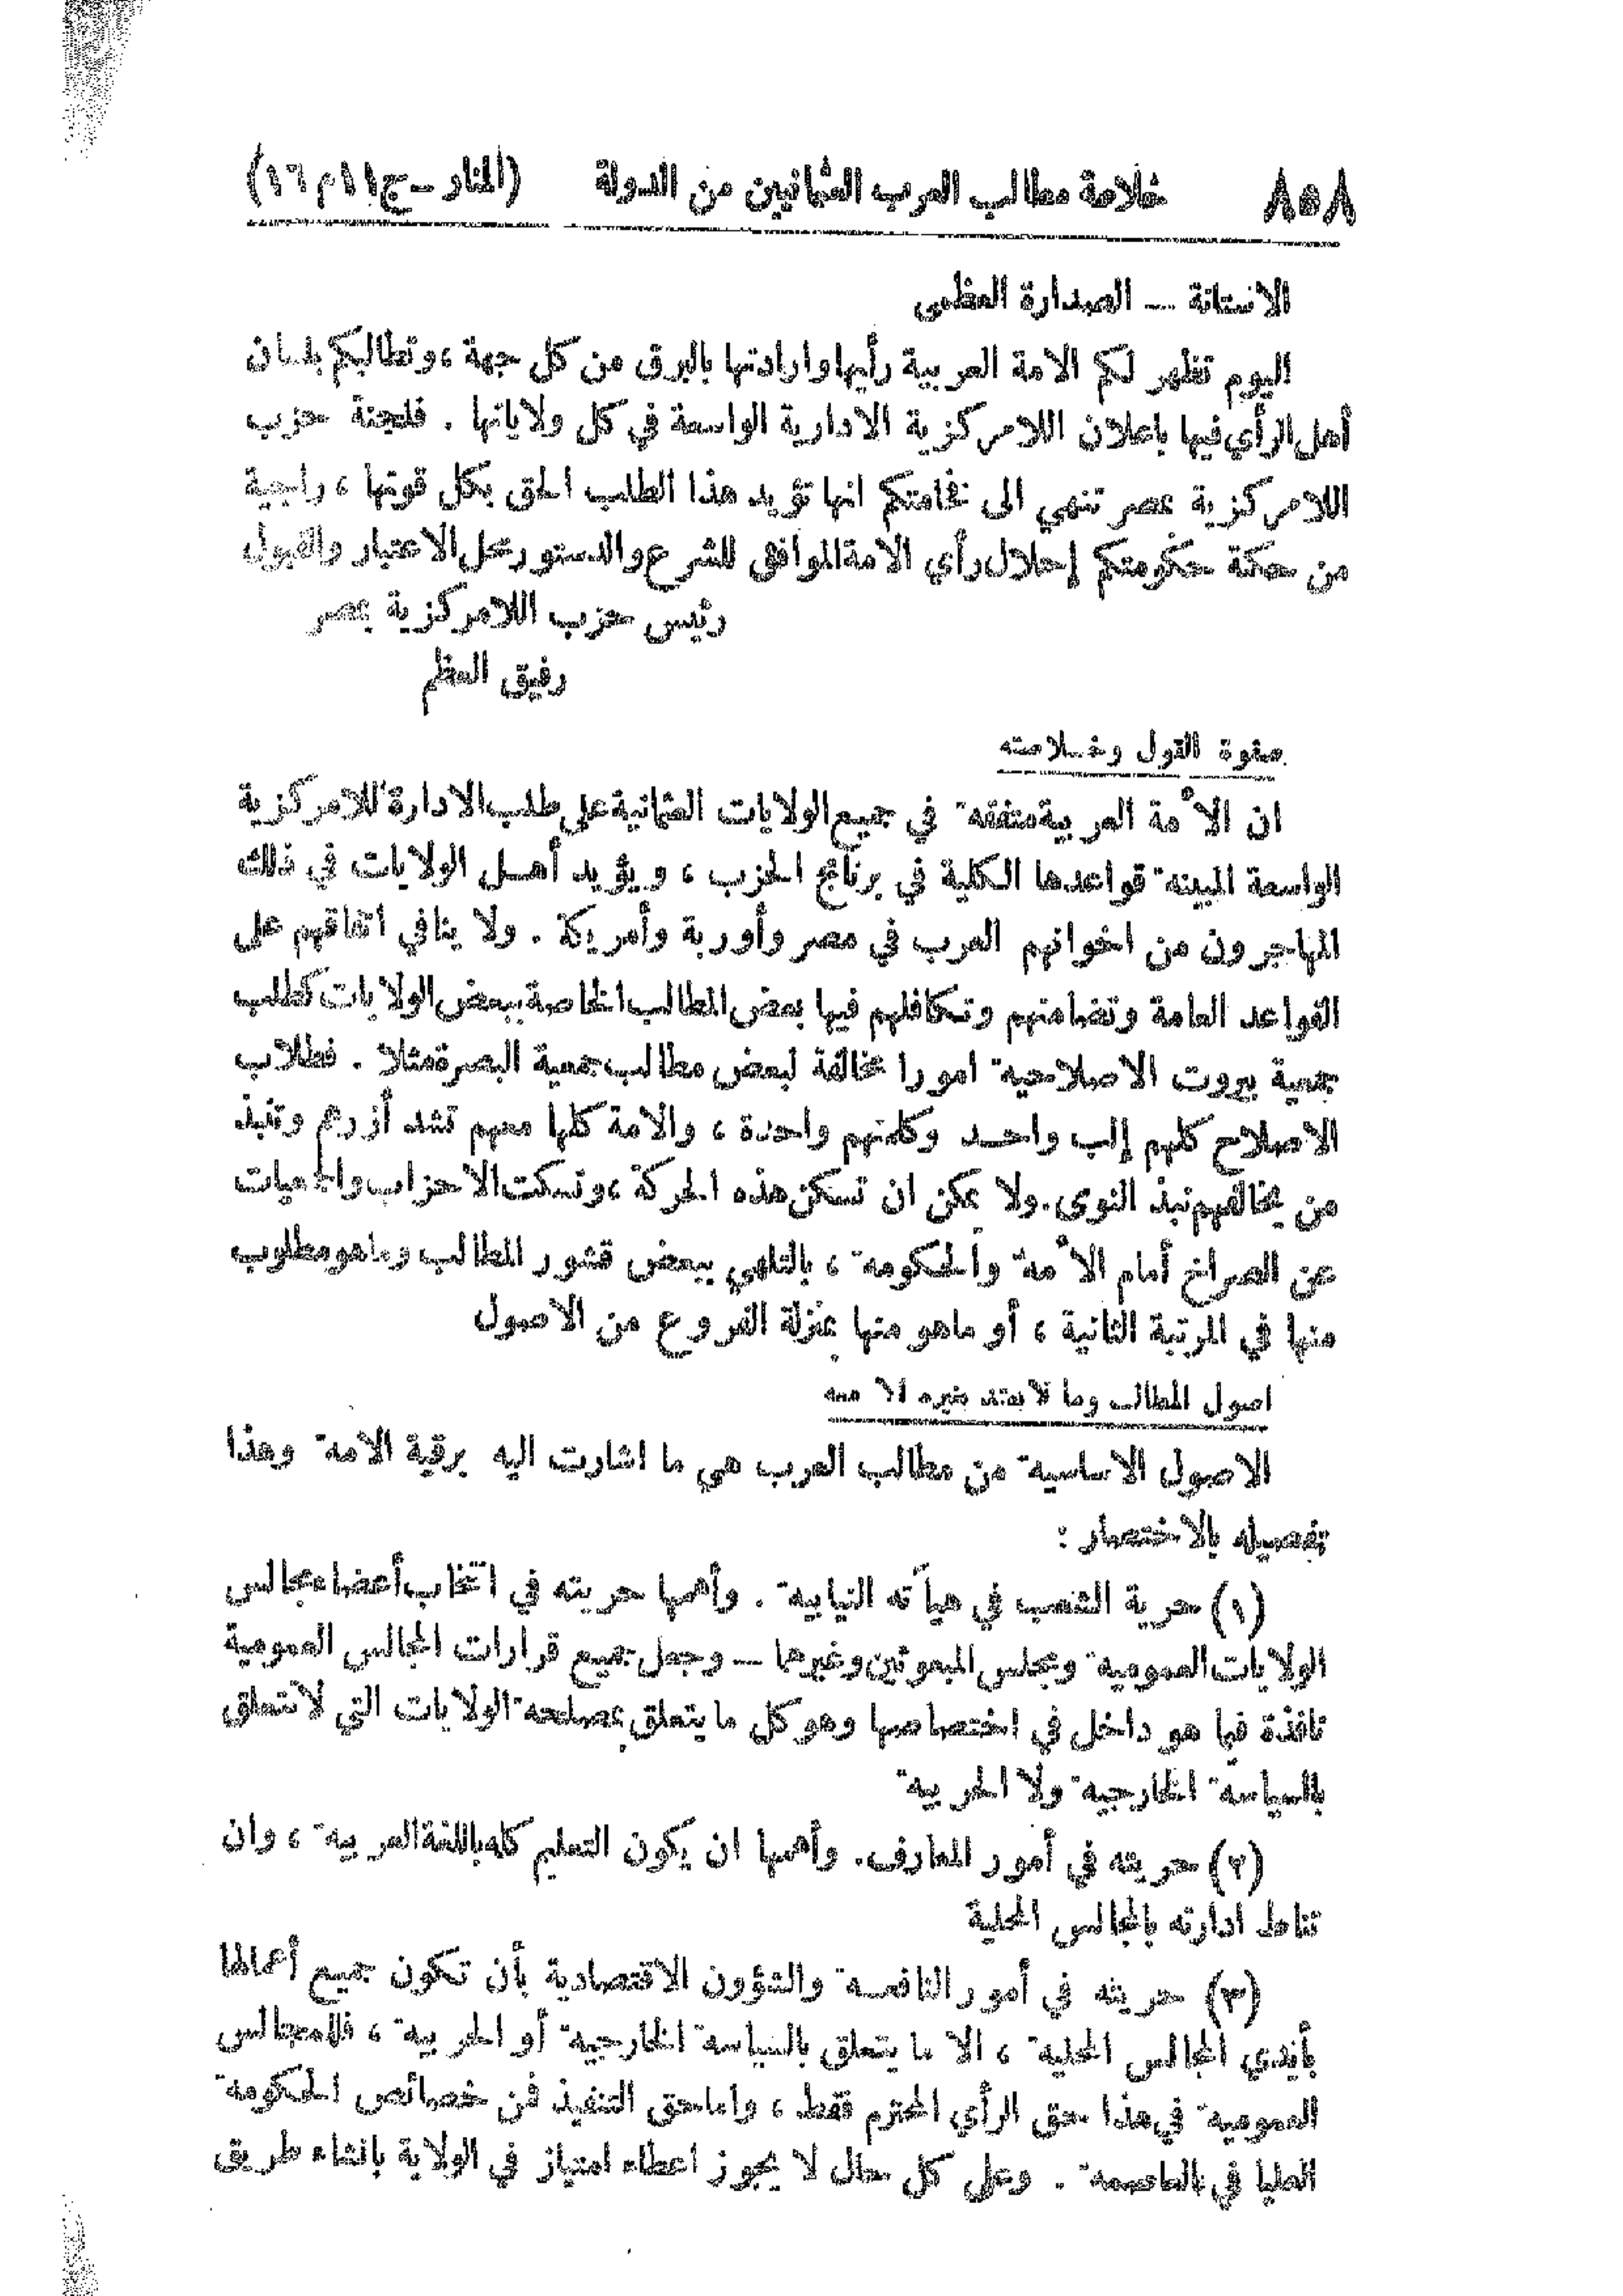 ٨٥٨ خلاصة مطالب العرب العثمانيين من الدولة (المنار – ج ١١ م ١٦)
الاستانة — الصدارة العظمى
اليوم تظهر لكم الامة العربية رأيها وارادتها بالبرق من كل جهة ، وتطالبكم بلسان
أهل الرأي فيها باعلان اللامركزية الادارية الواسعة في كل ولاياتها . فلجنة حزب
اللامركزية بمصر تنهي الى فخامتكم انها تؤيد هذا الطلب الحق بكل قوتها ، راجية
من حكمة حكومتكم إحلال رأي الامة الموافق للشرع والدستور محل الاعتبار والقبول
رئيس حزب اللامركزية بمصر
رفيق العظم
صفوة القول وخلاصته
ان الأمة العربية متفقة في جميع الولايات العثمانية على طلب الادارة اللامركزية
الواسعة المبينة قواعدها الكلية في برنامج الحزب ، ويؤيد أهل الولايات في ذلك
المهاجرون من اخوانهم العرب في مصر وأوربة وأمريكة . ولا ينافي اتفاقهم على
القواعد العامة وتضامنهم وتكافلهم فيها بعض المطالب الخاصة ببعض الولايات كطلب
جمعية بيروت الاصلاحية امورا مخالفة لبعض مطالب جمعية البصرة مثلا . فطلاب
الاصلاح كلهم إلب واحد وكلمتهم واحدة ، والامة كلها معهم تشد أزرهم وتنبذ
من يخالفهم نبذ النوى . ولا يمكن ان تسكن هذه الحركة ، وتسكت الاحزاب والجمعيات
عن الصراخ أمام الأمة والحكومة ، بالتلهي ببعض قشور المطالب وما هو مطلوب
منها في المرتبة الثانية ، أو ماهو منها بمنزلة الفروع من الاصول
اصول المطالب وما لا يعتد بغيره الا معه
الاصول الاساسية من مطالب العرب هي ما اشارت اليه برقية الامة وهذا
تفصيله بالاختصار :
(١) حرية الشعب في هيآته النيابية . وأهمها حريته في انتخاب أعضاء مجالس
الولايات العمومية ومجلس المبعوثين وغيرها — وجعل جميع قرارات المجالس العمومية
نافذة فيما هو داخل في اختصاصها وهو كل ما يتعلق بمصلحة الولايات التي لا تتعلق
بالسياسة الخارجية ولا الحربية
(٢) حريته في أمور المعارف . وأهمها ان يكون التعليم كله باللغة العربية ، وان
تناط ادارته بالمجالس المحلية
(٣) حريته في أمور النافعة والشؤون الاقتصادية بأن تكون جميع أعمالها
بأيدي المجالس المحلية ، الا ما يتعلق بالسياسة الخارجية أو الحربية ، فللمجالس
العمومية في هذا حق الرأي المحترم فقط ، واما حق التنفيذ فمن خصائص الحكومة
العليا في بالعاصمة . وعلى كل حال لا يجوز اعطاء امتياز في الولاية بانشاء طريق